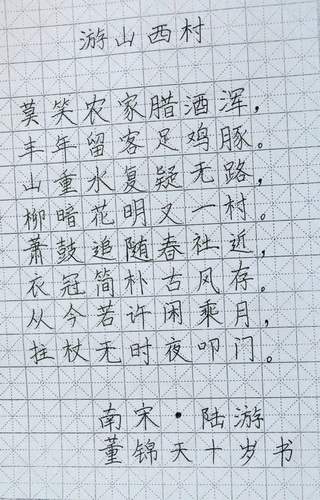 游山西村
莫笑农家腊酒浑，
丰年留客足鸡豚。
山重水复疑无路，
柳暗花明又一村。
萧鼓追随春社近，
衣冠简朴古风存。
从今若许闲乘月，
拄杖无时夜叩门。
南宋·陆游
董锦天十岁书